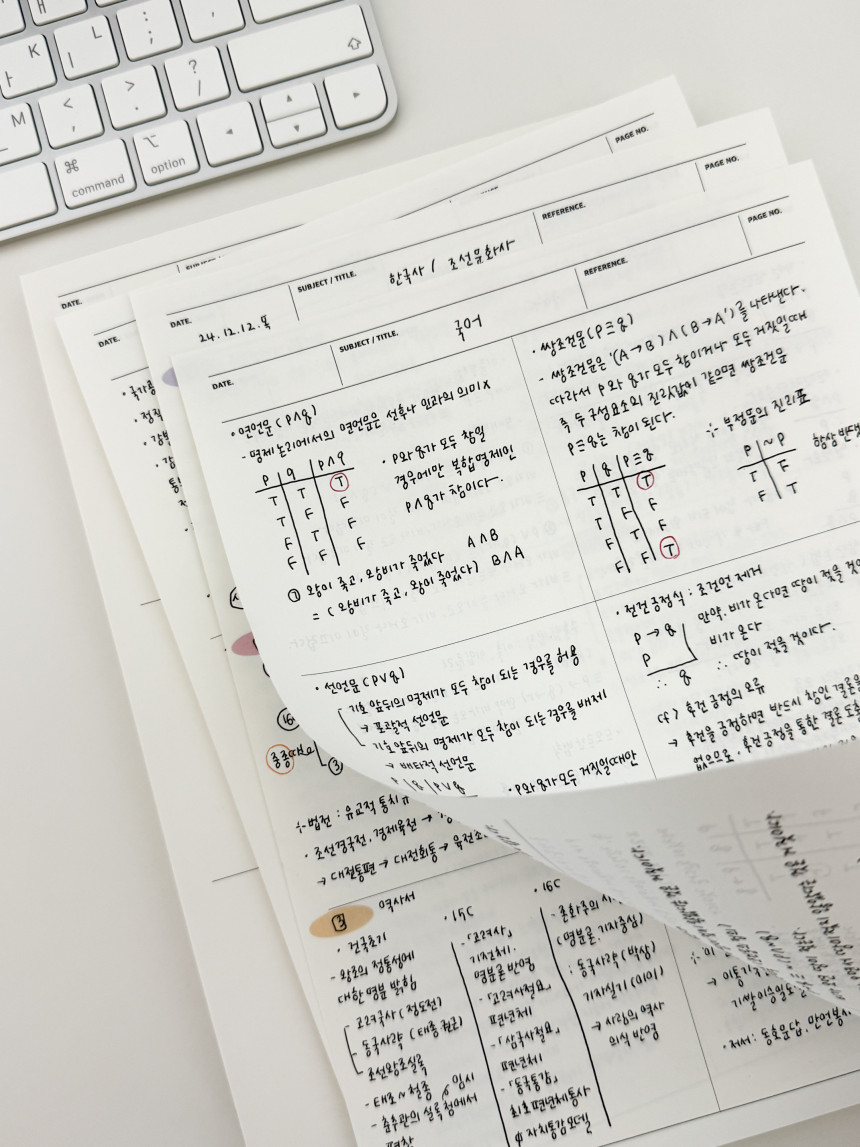 K
L
:
;
?
/
M
<
,
>
.
⌘
command
⌥
option
PAGE NO.
DATE.
REFERENCE.
PAGE NO.
SUBJECT / TITLE.
한국사 / 조선문화사
DATE.
24.12.12.목
DATE.
DATE.
SUBJECT / TITLE.
국어
REFERENCE.
PAGE NO.
• 연언문 (P∧q)
- 명제논리에서의 연언문은 선후나 인과의 의미 X
P q P∧q
T T T
T F F
F T F
F F F
• P와 q가 모두 참일
경우에만 복합명제인
P∧q가 참이다.
① 왕이 죽고, 왕비가 죽었다 A∧B
= (왕비가 죽고, 왕이 죽었다) B∧A
• 쌍조건문 (P≡q)
- 쌍조건문은 '(A→B)∧(B→A')를 나타낸다.
따라서 P와 q가 모두 참이거나 모두 거짓일때
즉 두 구성요소의 진리값이 같으면 쌍조건문
P≡q는 참이 된다.
P q P≡q
T T T
T F F
F T F
F F T
부정문의 진리표
P ~P
T F
F T
항상 반대
• 선언문 (P∨q)
기호 앞뒤의 명제가 모두 참이 되는 경우를 허용
→ 포괄적 선언문
기호 앞뒤의 명제가 모두 참이 되는 경우를 배제
→ 배타적 선언문
P q P∨q
• P와 q가 모두 거짓일때만
• 전건긍정식 : 조건언 제거
P → q
P
∴ q
만약, 비가 온다면 땅이 젖을 것이
비가 온다
∴ 땅이 젖을 것이다.
cf) 후건 긍정의 오류
→ 후건을 긍정하면 반드시 참인 결론을
없으므로, 후건 긍정을 통한 결론 도출
③
법전 : 유교적 통치규
• 조선경국전, 경제육전 →
→ 대전통편 → 대전회통 → 육전조
3 역사서
• 건국초기
- 왕조의 정통성에
대한 명분 밝힘
고려국사 (정도전)
동국사략 (태종 권근)
조선왕조실록
- 태조~철종
임시
- 춘추관의 실록청에서
편찬
• 15C
-「고려사」
기전체.
명분론 반영
-「고려사절요」
편년체
-「삼국사절요」
편년체
-「동국통감」
최초편년체통사
자치통감모델
• 16C
- 존화주의 사
(명분론, 기자중심)
: 동국사략 (박상)
기자실기 (이이)
→ 사림의 역사
의식 반영
→ 이통기
• 저서 : 동호문답, 만언봉사